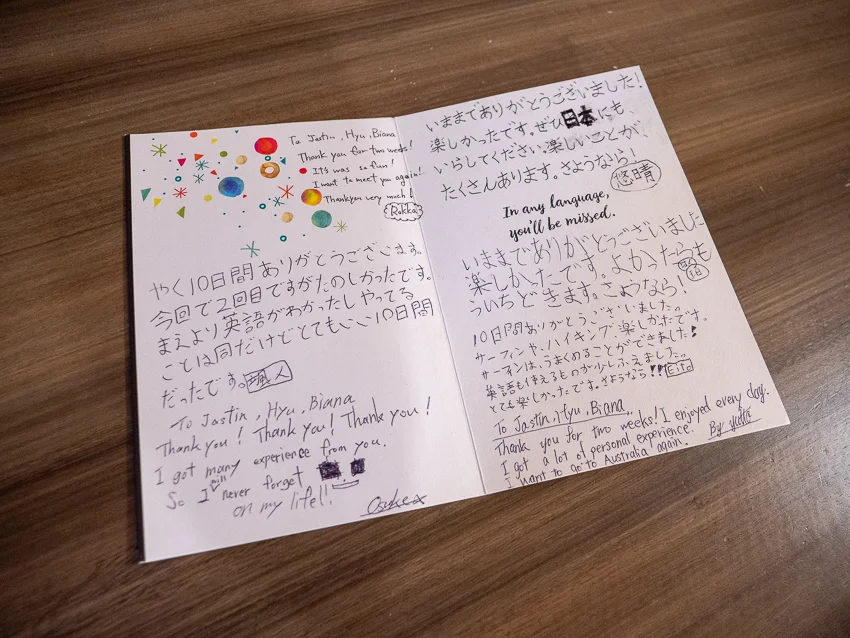 To Jastin, Hyu, Biana
Thank you for two weeks!
It's was so fun!
I want to meet you again!
Thankyou very much!
Rokka
やく10日間ありがとうごさごさいます。
今回で2回目ですがたのしかったです。
まえより英語がわかったし やってる
ことは同だけどとてもいい10日間
だったです。颯人
To Jastin, Hyu, Biana
Thank you! Thank you! Thank you!
I got many experience from you.
So I will never forget
on my life!!
Osuke
いままでありがとうございました!
楽しかったです。ぜひ日本にも、
いらしてください。楽しいことが
たくさんあります。さようなら!
悠晴
In any language,
you'll be missed.
いままでありがとうございました
楽しかたです。よかったらも
ういちどきます。さようなら!
10日間ありがとうございました。
サーフィンや、ハイキング、楽しかたです。
サーフィンは、うまくのることができました!
英語も使えるものが少しふえました。
とても楽しかったです。さようなら!!! Eito
To Jastin, Hyu, Biana,
Thank you for two weeks! I enjoyed every day.
I got a lot of personal experience.
I want to go to Australia again.
By yuta